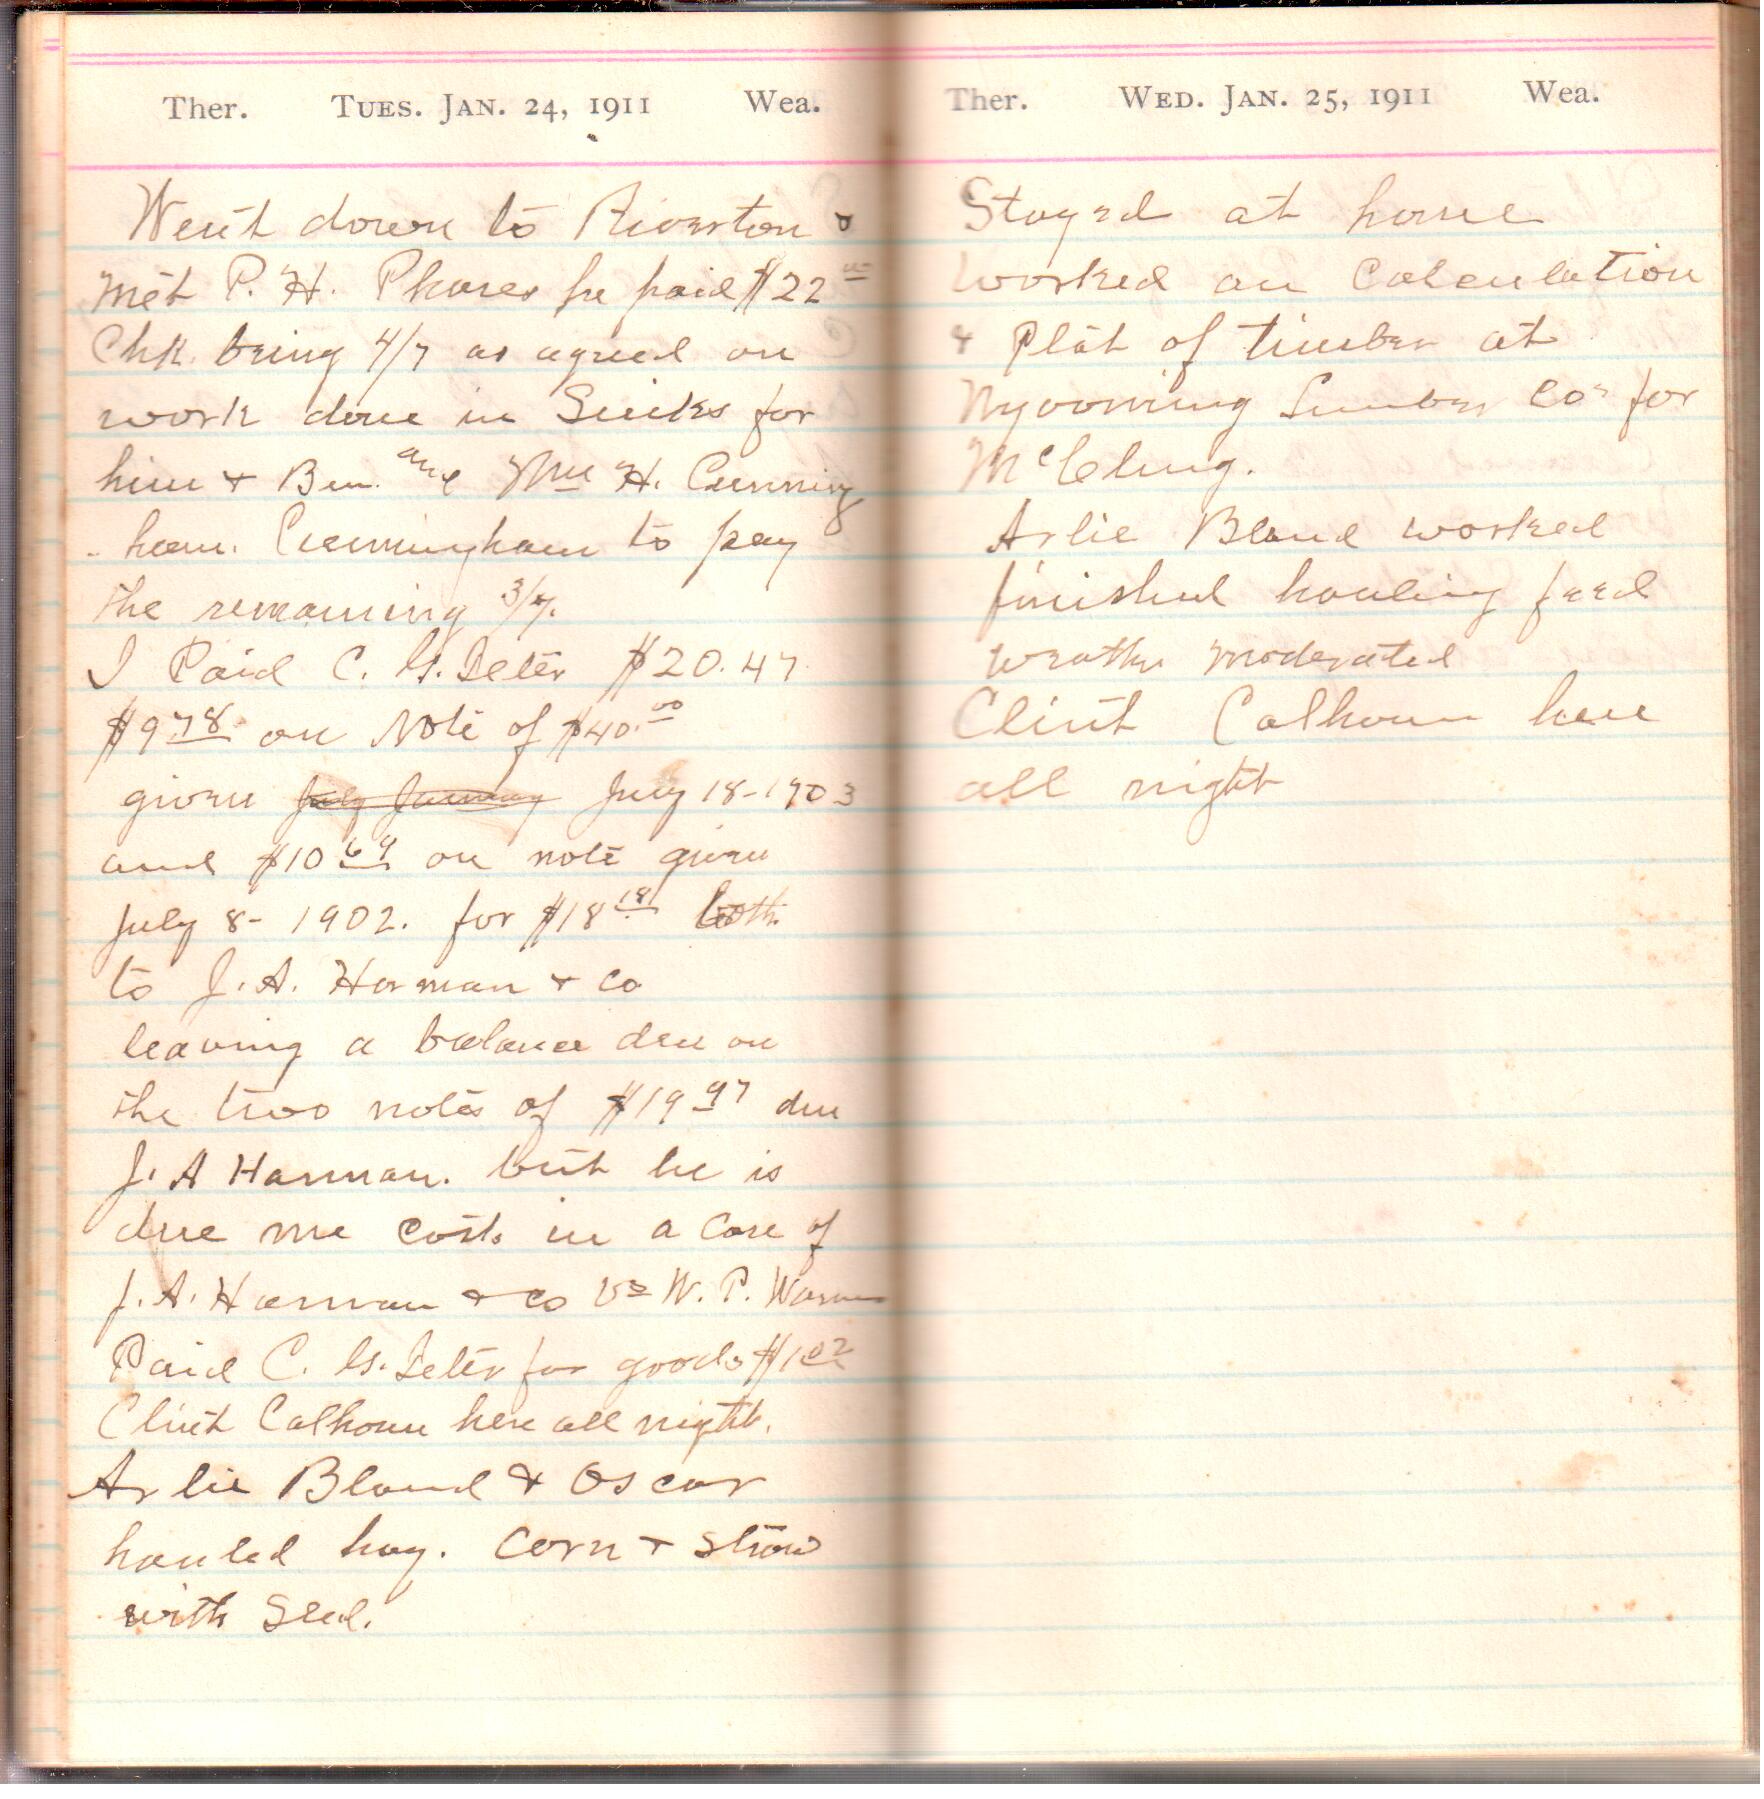 Ther. TUES. JAN. 24, 1911 Wea.
Went down to Riverton &
met P. H. Phares he paid $22 00
Chk. being 4/7 as agreed on
work done in Sinks for
him & Ben. and Wm H. Cunning
- ham. Cunningham to pay
the remaining 3/7.
I Paid C. G. Teter $20.47
$9 78 on Note of $40.00
given July January July 18-1903
and $10 69 on note given
July 8- 1902. for $18 18 both
to J. A. Harman & Co
leaving a balance due on
the two notes of $19 97 due
J. A Harman. but he is
due me costs in a Case of
J. A. Harman & Co vs W. P. Warner
Paid C. G. Teter for goods $1 02
Clint Calhoun here all night.
Arlie Bland & Oscar
hauled hay. Corn & straw
with Sled.
Ther. WED. JAN. 25, 1911 Wea.
Stayed at home
worked on Calculation
& Plat of timber at
Wyooming Lumber Cos for
McClung.
Arlie Bland worked
finished hauling feed
weather moderated
Clint Calhoun here
all night